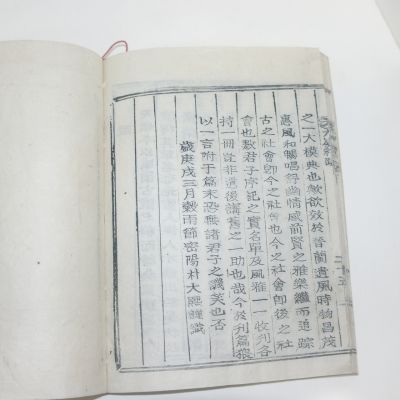 之一大模典也歟欲效於晉蘭遺風時物昌茂
惠風和暢唱得幽情感前賢之雅樂繼而追踪
古之社會卽今之社會也今之社會卽後之社
會也數君子序記之實名單及風雅一一收列各
持一冊詎非遺後講舊之一助也哉今於刋篇猥
以一言附于篇末恐無諸君子之譏笑也否
歲庚戌三月穀雨節密陽朴大
謹識
二十五